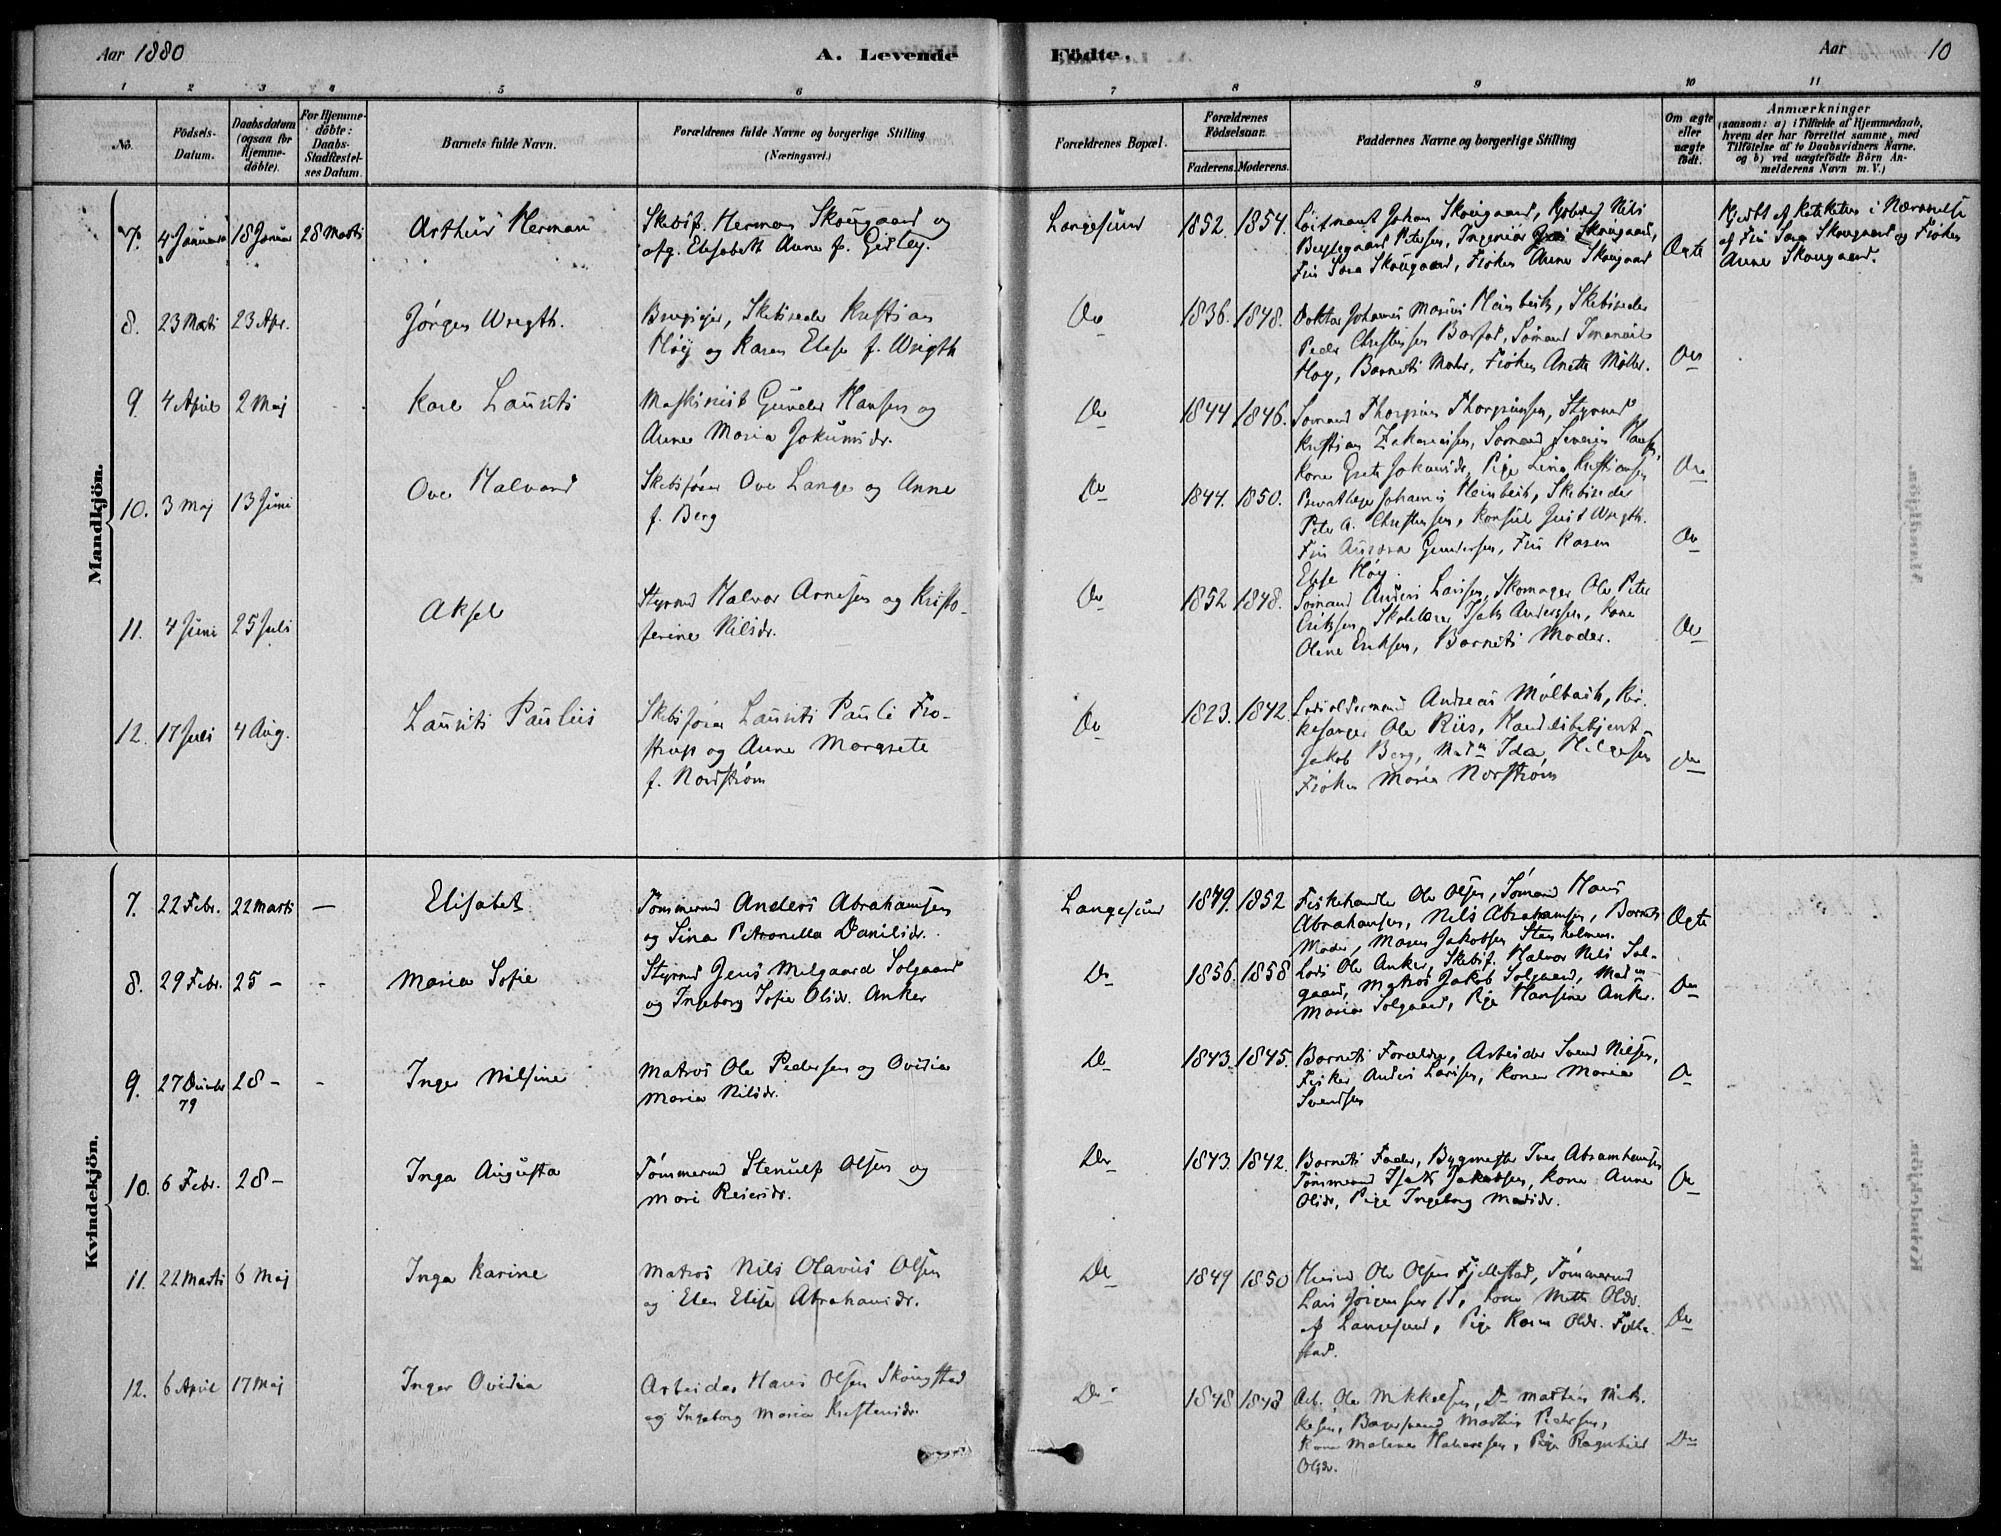 Aar 1880
A. Levende
Födte.
Aar
10
1 2 3 4 5 6 7 8 9 10 11
No.
Födsels-
Datum.
Daabsdatum
(ogsaa for
Hjemme-
döbte).
For Hjemme-
döbte:
Daabs-
Stadfæstel-
ses Datum.
Barnets fulde Navn.
Forældrenes fulde Navne og borgerlige Stilling
(Næringsvei.)
Forældrenes Bopæl.
Forældrenes
Födselsaar.
Faderens. Moderens.
Faddernes Navne og borgerlige Stilling
Om ægte
eller
uægte
födt.
Anmærkninger
(saasom: a) i Tilfælde af Hjemmedaab,
hvem der har forrettet samme, med
Tilföielse af to Daabsvidners Navne.
og b) ved uægtefödte Börn An-
melderens Navn m. V.)
Mandkjön.
7. 4 Januar 18 Januar 28 Marts Arthur Herman
Skibsf. Herman Skougaard og
afg. Elisabeth Anne f.
Langesund 1852. 1854.
Löitnant Johan Skougaard, Nils
Petersen, Ingeniør Skougaard,
Fru Sara Skougaard, Frøken Anne Skougaard
Ægte
af i Nærværelse
af Fru Sara Skougaard og Frøken
Anne Skougaard.
8. 23 Marts 23 Apr. Jørgen Wregth.
Skibsreder Kristian
Høy og Karen Elise f. Wregth
Do 1836. 1848.
Doktor Johannes Marius Heimbeck, Skibsreder
Peder Christensen, Sømand
Høy, Barnets Moder, Frøken Anette Møller.
Do
9. 4 April 2 Maj Karl Laurits
Maskinist Gunder Hansen og
Anne Maria Jokumsdr.
Do 1844 1846.
Sømand Styrmd
Kristian Zakariasen, Sømand Severin Hansen,
Kone Jokumsdr, Pige Lina Kristiansen
Do
10. 3 Maj 13 Juni Ove Halvard
Skibsfører Ove Lange og Anne
f. Berg
Do 1844. 1850.
Johannes Heimbeck, Skibsreder
Peter A. Christensen, Konsul Just Wregth.
Fru Aurora Gundersen, Fru Karen
Elise Høy.
Do
11. 4 Juni 25 Juli Aksel
Styrmd Halvor Arnesen og Kristo-
ferine Nilsdr.
Do 1852 1848.
Sømand Anders Larsen, Skomager Ole Peter
Eriksen, Skolelærer Isak Anderssen, Kone
Olene Eriksen, Barnets Moder.
Do
12. 17 Juli 4 Aug. Laurits Paulus
Skibsfører Laurits Pauli Fro-
strup og Anne Margrete
f. Nordstrøm
Do 1823. 1842.
Lodsoldermand Andreas Mølbach, Kir-
kesanger Ole Riis, Handelsbetjent
Jakob Berg, Madm Ida Helgesen
Frøken Maria Norstrøm
Do
Kvindekjön.
7. 22 Febr. 22 Marts — Elisabet
Tømmermd Anders Abrahamsen
og Sina Petronella Danielsdr.
Langesund 1849. 1852
Fiskehandler Ole Olsen, Sømand Hans
Abrahamsen, Nils Abrahamsen, Barnets
Moder, Maren Jakobsen Stenholmen.
Ægte
8. 29 Febr. 25 — - Maria Sofie
Styrmd Jens Melgaard Solgaard
og Ingeborg Sofie Olsdr. Anker
Do 1856. 1858
Lods Ole Anker, Skibsf. Halvor Nils Sol-
gaard, Matros Jakob Solgaard, Madm
Maria Solgaard, Pige Hansine Anker.
Do
9. 27 Decbr 79 28 — - Inger Nilsine
Matros Ole Pedersen og Ovidia
Maria Nilsdr.
Do 1843. 1845.
Barnets Forældre, Arbeider Svend Nilsen,
Fisker Anders Larsen, Kone Maria
Svendsen
Do
10. 6 Febr. 28 — Inga Augusta
Tømmermd Stenulf Olsen og
Mari Reiersdr.
Do 1843. 1842.
Barnets Fader, Bygmester Iver Abrahamsen
Tømmermd Isak Jakobsen, Kone Anne
Olsdr, Pige Ingeborg Madsdr.
Do
11. 22 Marts 6 Maj Inga Karine
Matros Nils Olavus Olsen
og Elen Elise Abrahamsdr.
Do 1849 1850
Ole Olsen Fjellestad, Tømmermd
Lars Jörgensen, Kone Mette Olsdr.
af Langesund, Pige Karen Olsdr. Fjelle-
stad.
Do
12. 6 April 17 Maj Inger Ovidia
Arbeider Hans Olsen Skougstad
og Ingeborg Maria Kristensdr.
Do 1848 1843
Arb. Ole Mikkelsen, Do Mathias Mik-
kelsen, Bagersvend Mathias Pedersen,
Kone Malene Halvorsen, Pige Ragnhild
Olsdr.
Do